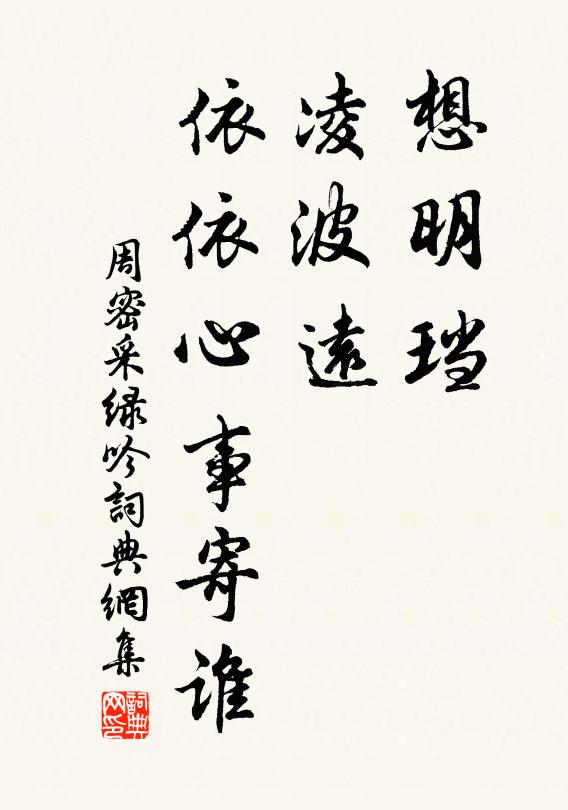 想明珰
凌波遠
依依心事寄誰
周密采绿吟詞典網集
詞典网印